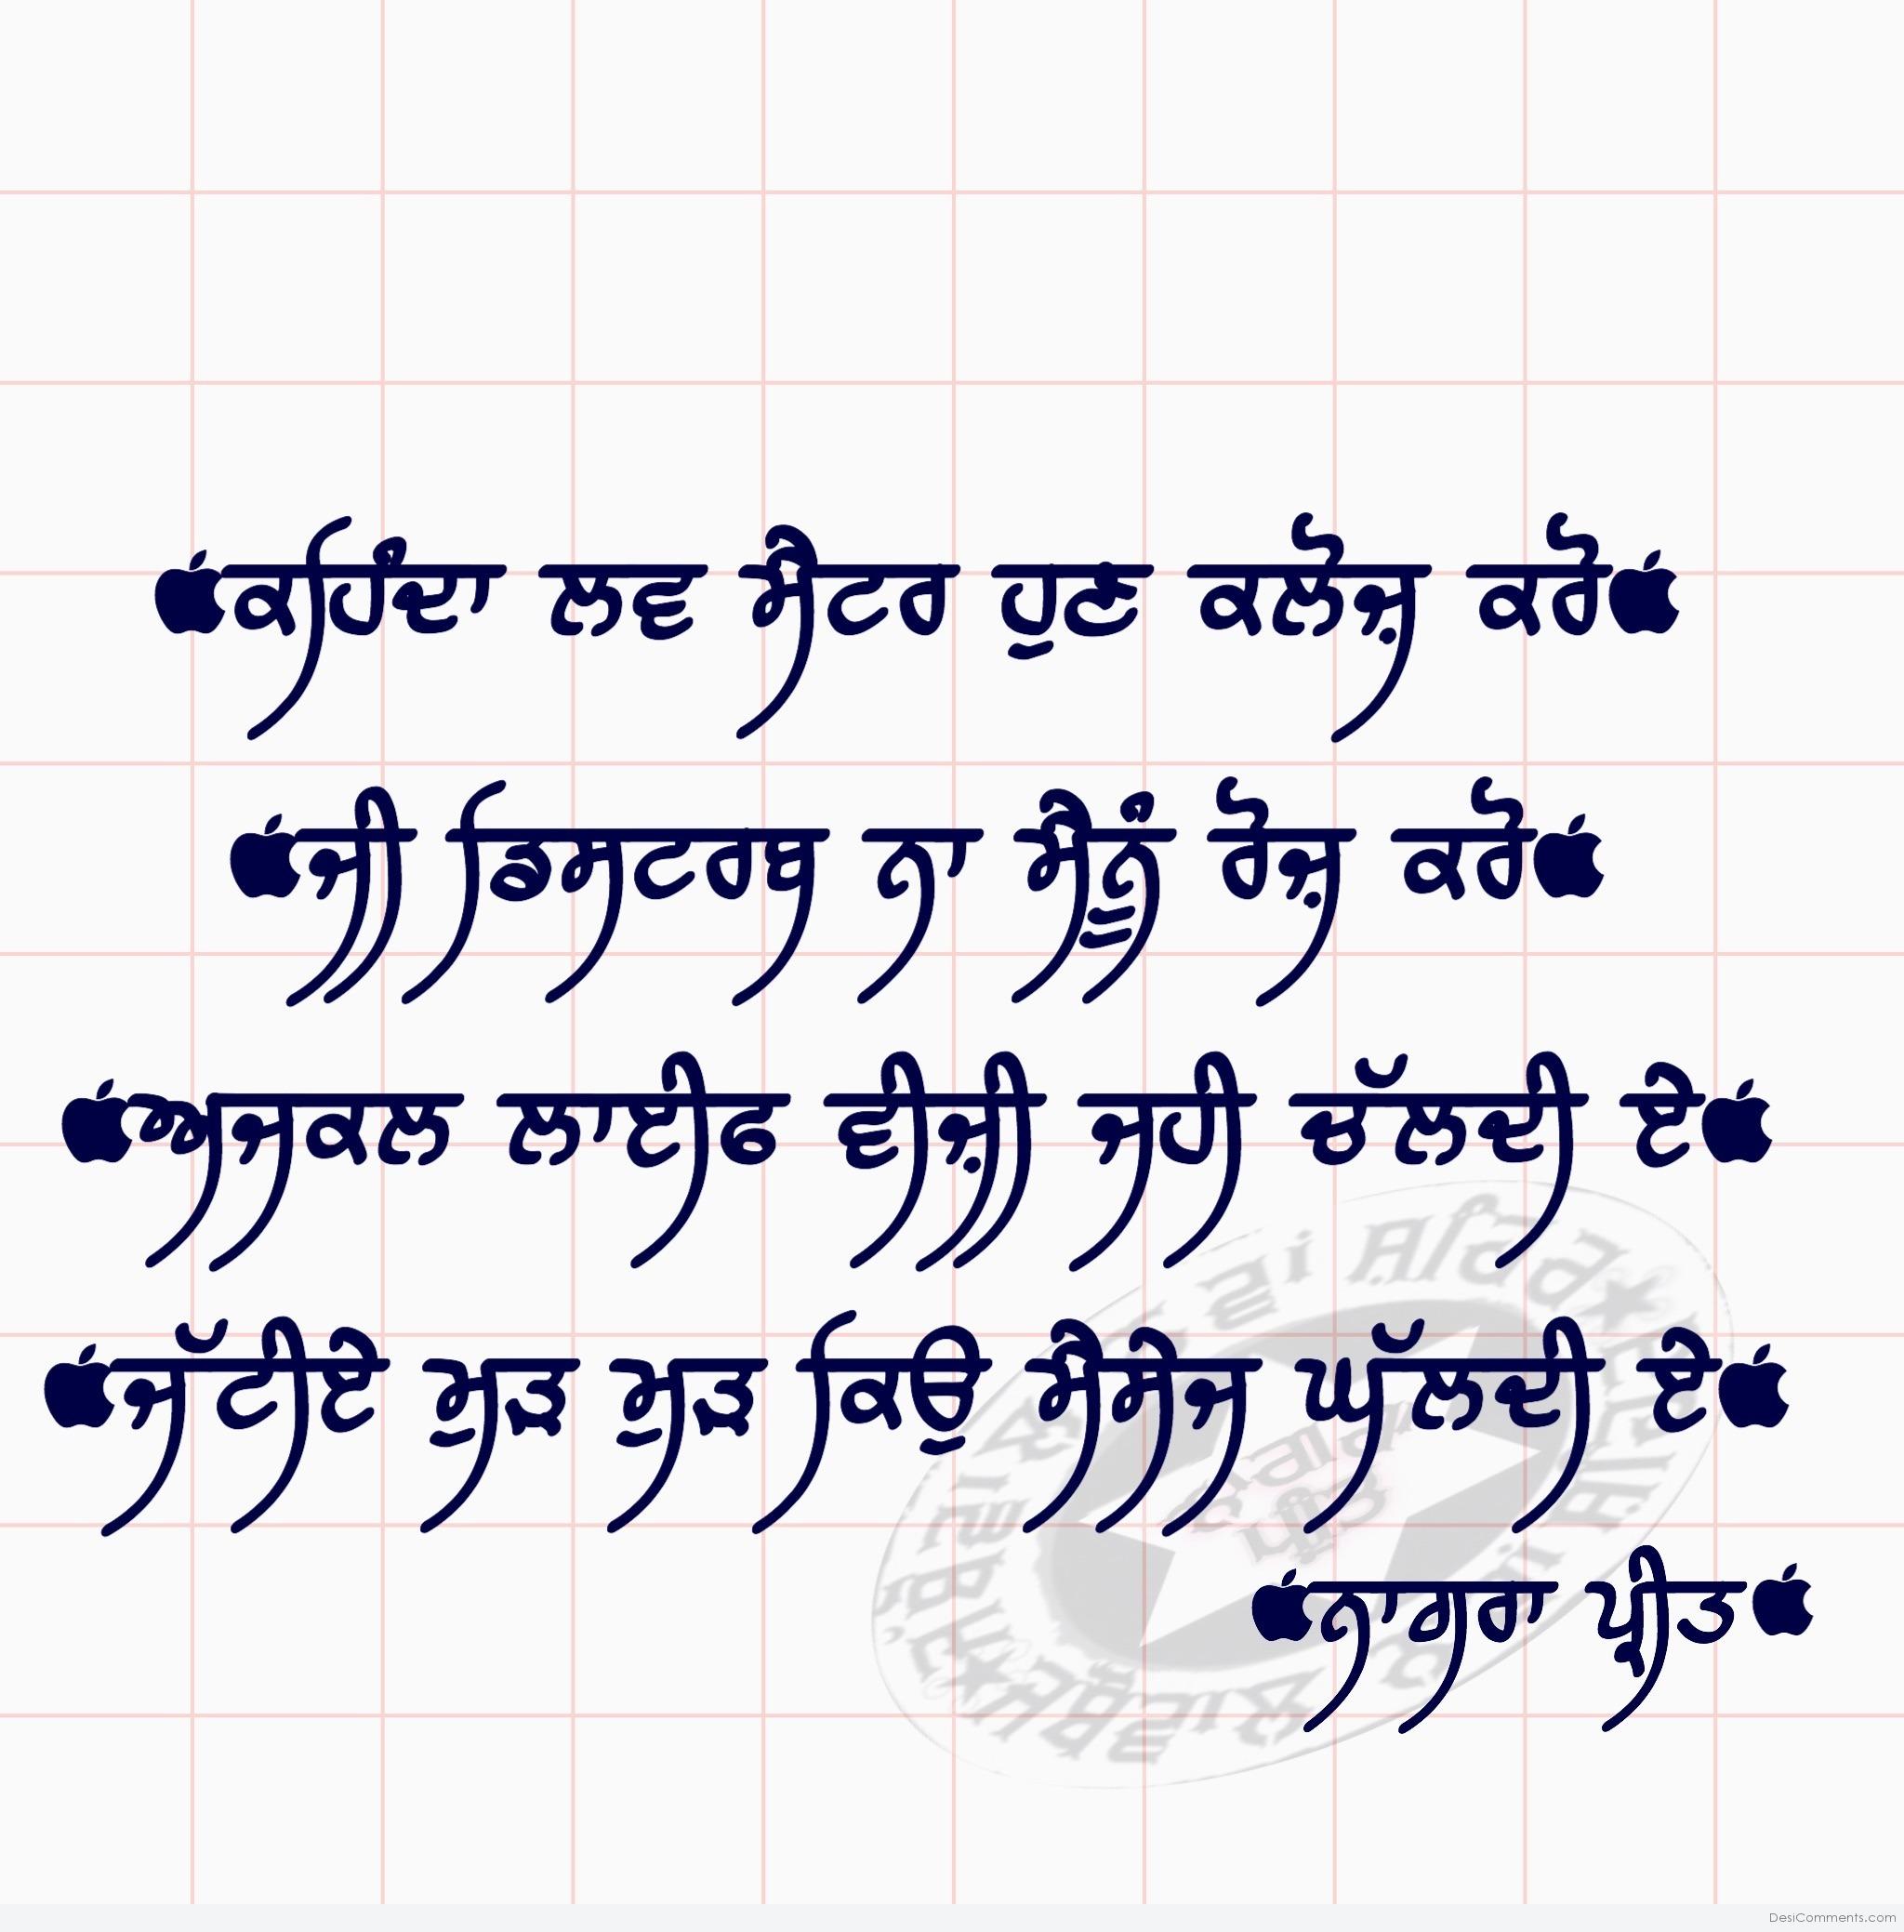 ਕਹਿੰਦਾ ਲਵ ਮੈਟਰ ਹੁਣ ਕਲੋਜ਼ ਕਰੋ
ਜੀ ਡਿਸਟਰਬ ਨਾ ਮੈਨੂੰ ਰੋਜ਼ ਕਰੋ
ਅਜਕਲ ਲਾਈਫ ਵੀਜ਼ੀ ਜਹੀ ਚੱਲਦੀ ਏ
ਜੱਟੀਏ ਮੁੜ ਮੁੜ ਕਿਉ ਮੈਸੇਜ ਘੱਲਦੀ ਏ
ਨਾਗਰਾ ਪ੍ਰੀਤ
DesiComments.com